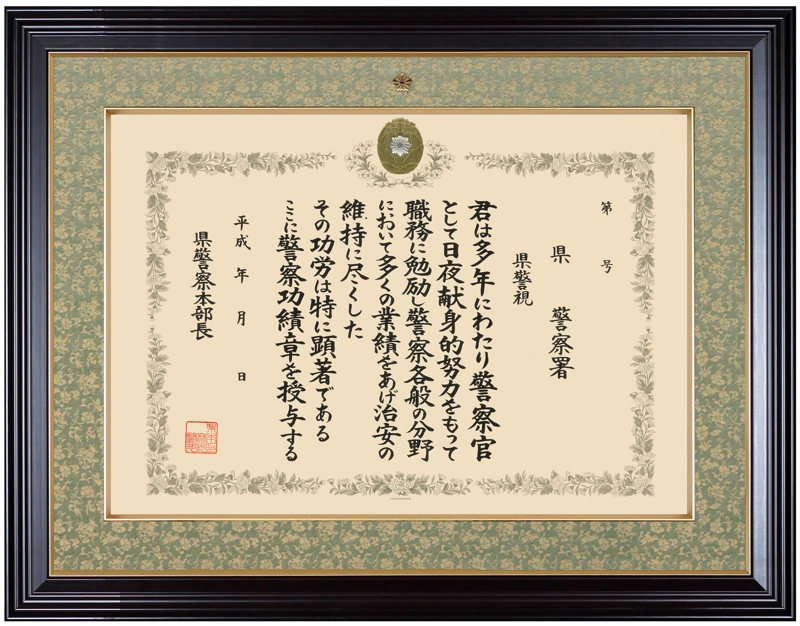 第　号
県　警察署
県警視
君は多年にわたり警察官
として日夜献身的努力をもって
職務に勉励し警察各般の分野
において多くの業績をあげ治安の
維持に尽くした
その功労は特に顕著である
ここに警察功績章を授与する
平成　年　月　日
県警察本部長